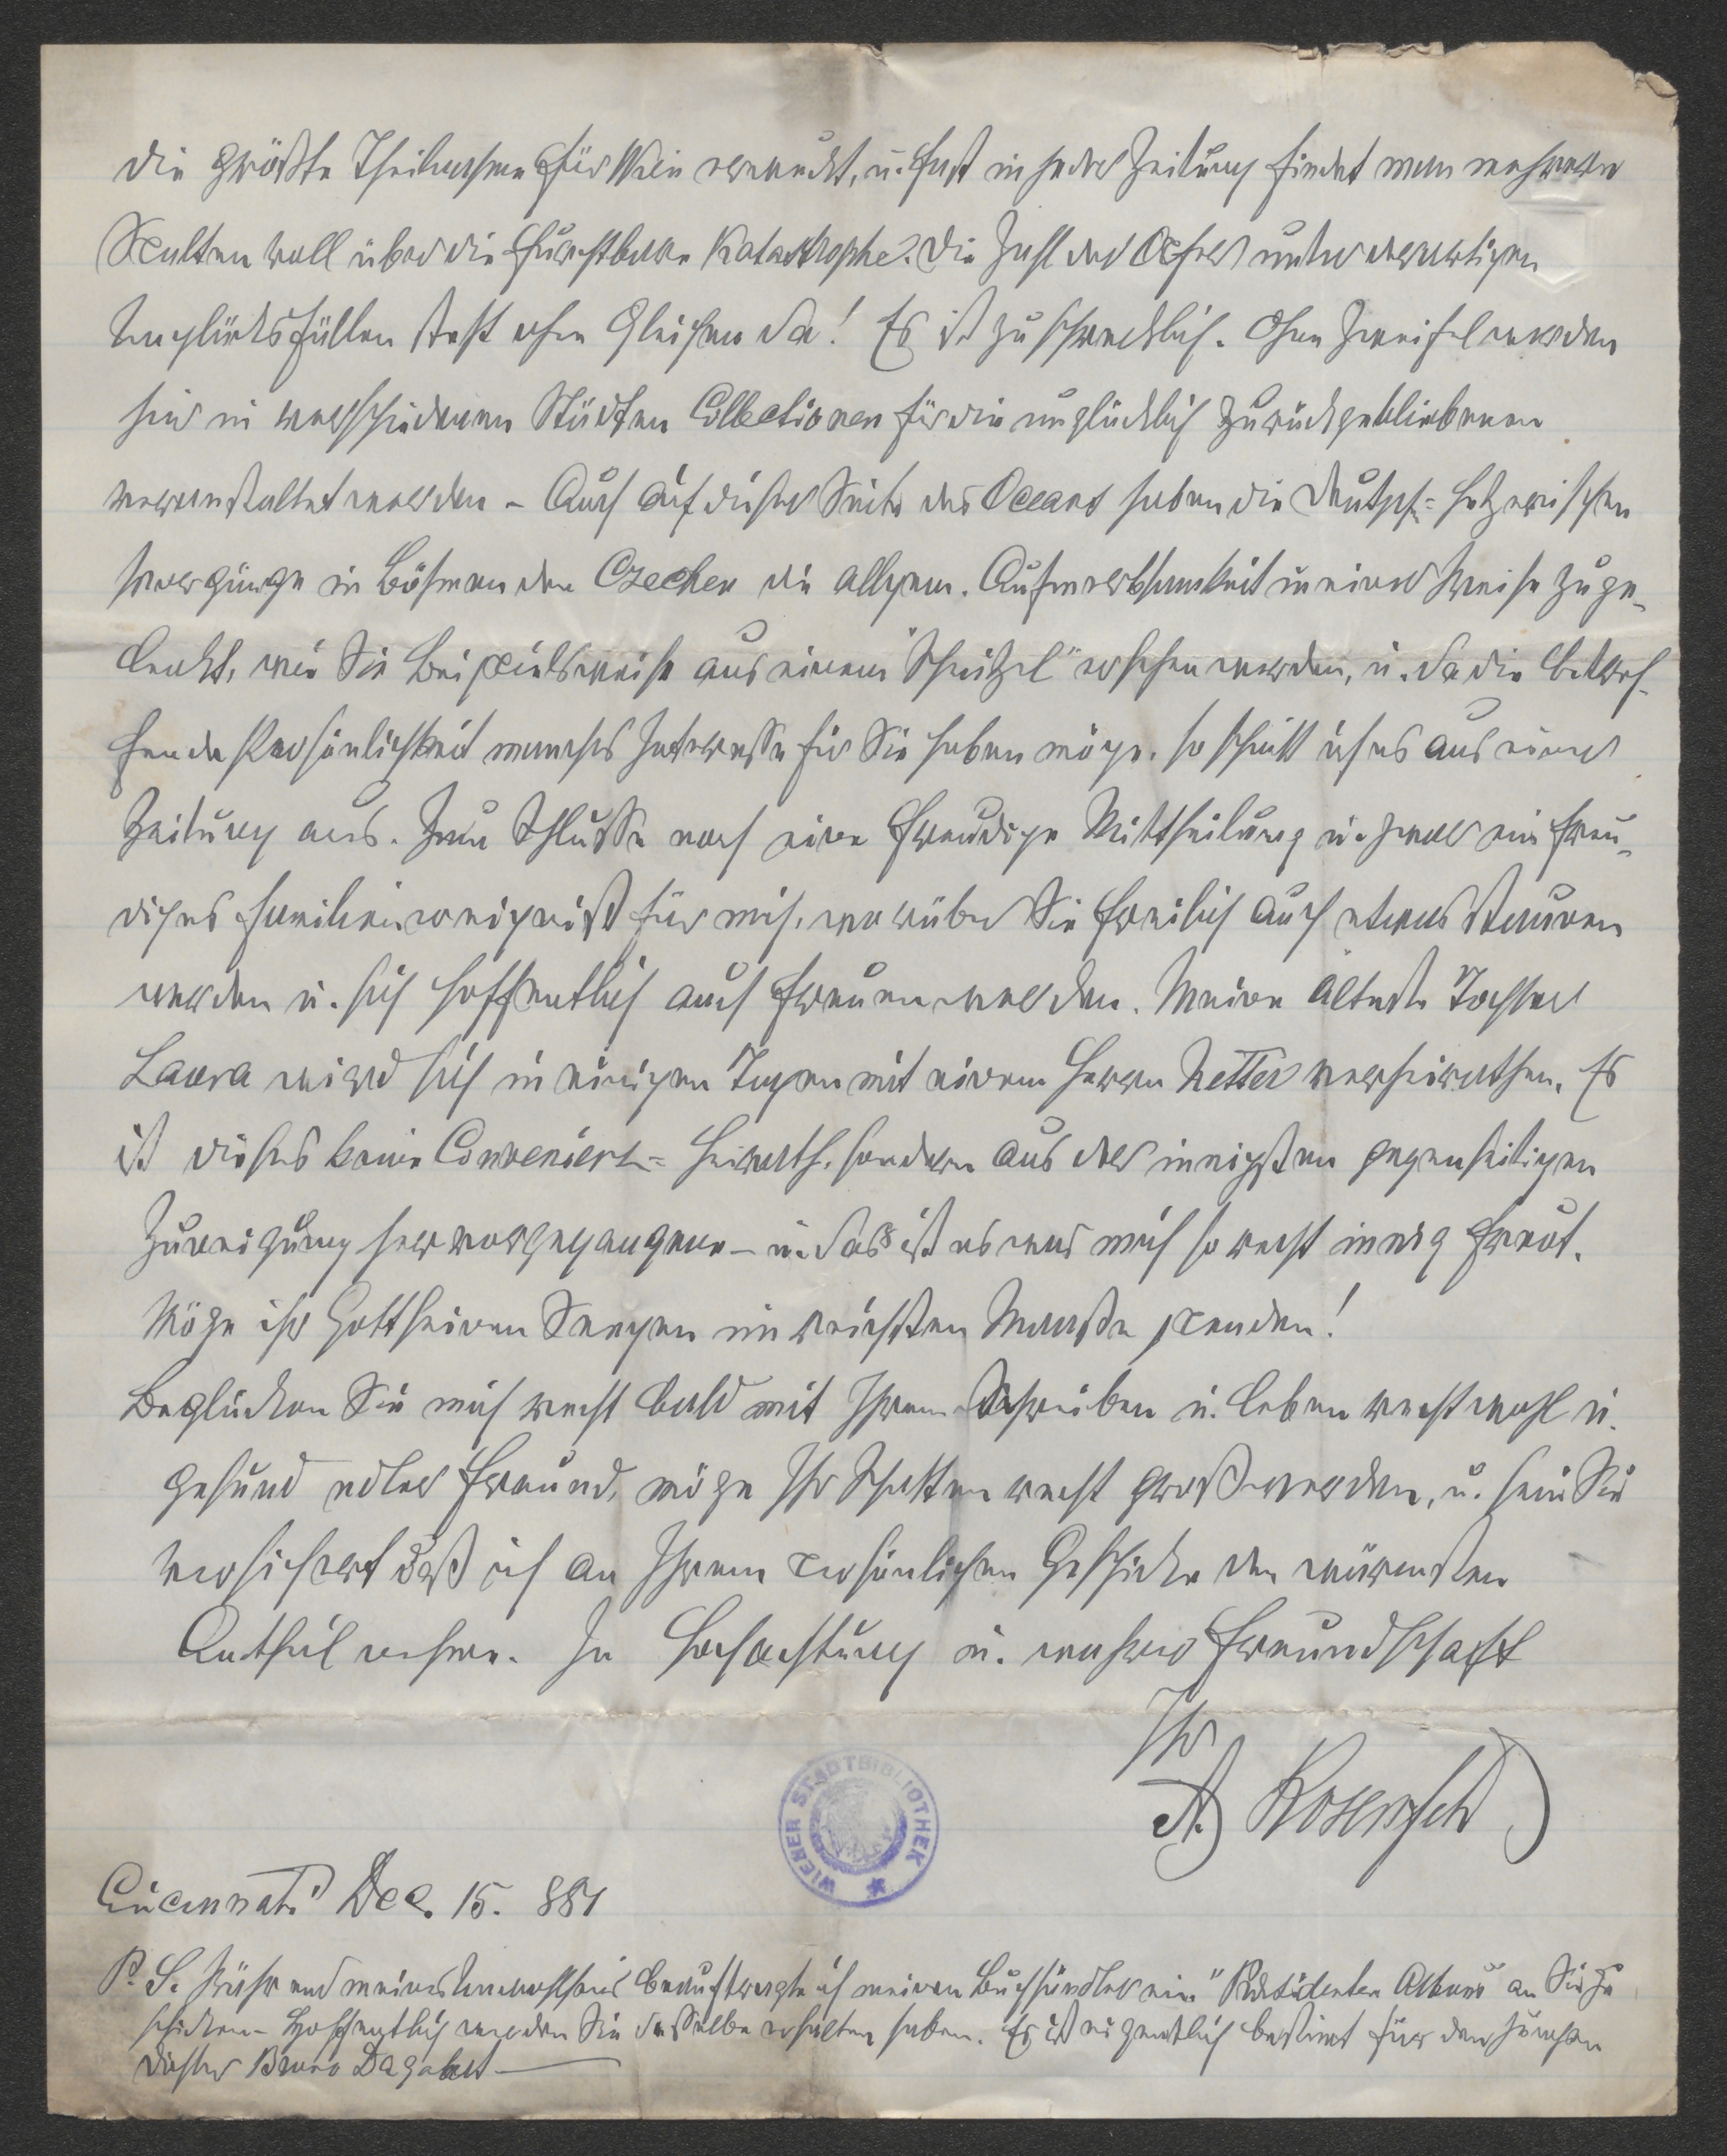 die größte Theilnahme für Wien erwacht, u. fast in jeder Zeitung findet man mehrere
Spalten voll über die furchtbare Katastrophe. Die Zahl der Opfer unter derartigen
Unglücksfällen steht ohne Gleichen da! Es ist zu schrecklich. Ohne Zweifel werden
hier in verschiedenen Städten Collectionen für die unglücklich Zurückgebliebenen
veranstaltet werden – Auch auf dieser Seite des Oceans haben die deutsch-hetzerischen
Vorgänge in Böhmen den Czechen die allgem. Aufmerksamkeit in einer Weise zuge-
lenkt, wie Sie beispielsweise aus einem "Schnitzel" ersehen werden, u. da die betref-
fende Persönlichkeit manches Interesse für Sie haben möge, so schnitt ich es aus einer
Zeitung aus. Zum Schlusse noch eine freudige Mittheilung u. zwar ein freu-
diges Familienereigniß für mich, worüber Sie freilich auch etwas staunen
werden u. sich hoffentlich auch freuen werden. Meine älteste Tochter
Laura wird sich in einigen Tagen mit einem Herrn Netter verheirathen. Es
ist dieses keine Convenienz-Heirath, sondern aus der innigsten gegenseitigen
Zuneigung hervorgegangen – u. das ist es was mich so recht innig freut.
Möge ihr Gott seinen Segen im reichsten Maaße spenden!
Beglücken Sie mich recht bald mit Ihrem Schreiben u. leben recht wohl u.
gesund edler Freund, möge Ihr Schatten recht groß werden, u. sein Sie
versichert daß ich an Ihrem persönlichen Geschicke den wärmsten
Antheil nehme. In Hochachtung u. wahrer Freundschaft
Ihr
A.
WIENER STADTBIBLIOTHEK
Cincinnati Dec. 15. 881
P. S. Während meines Unwohlseins beauftragte ich meinen Buchhändler ein "Präsidenten Album" an Sie zu
schicken – Hoffentlich werden Sie dasselbe erhalten haben. Es ist eigentlich bestimt für den jungen
Dichter Bruno Dagobert